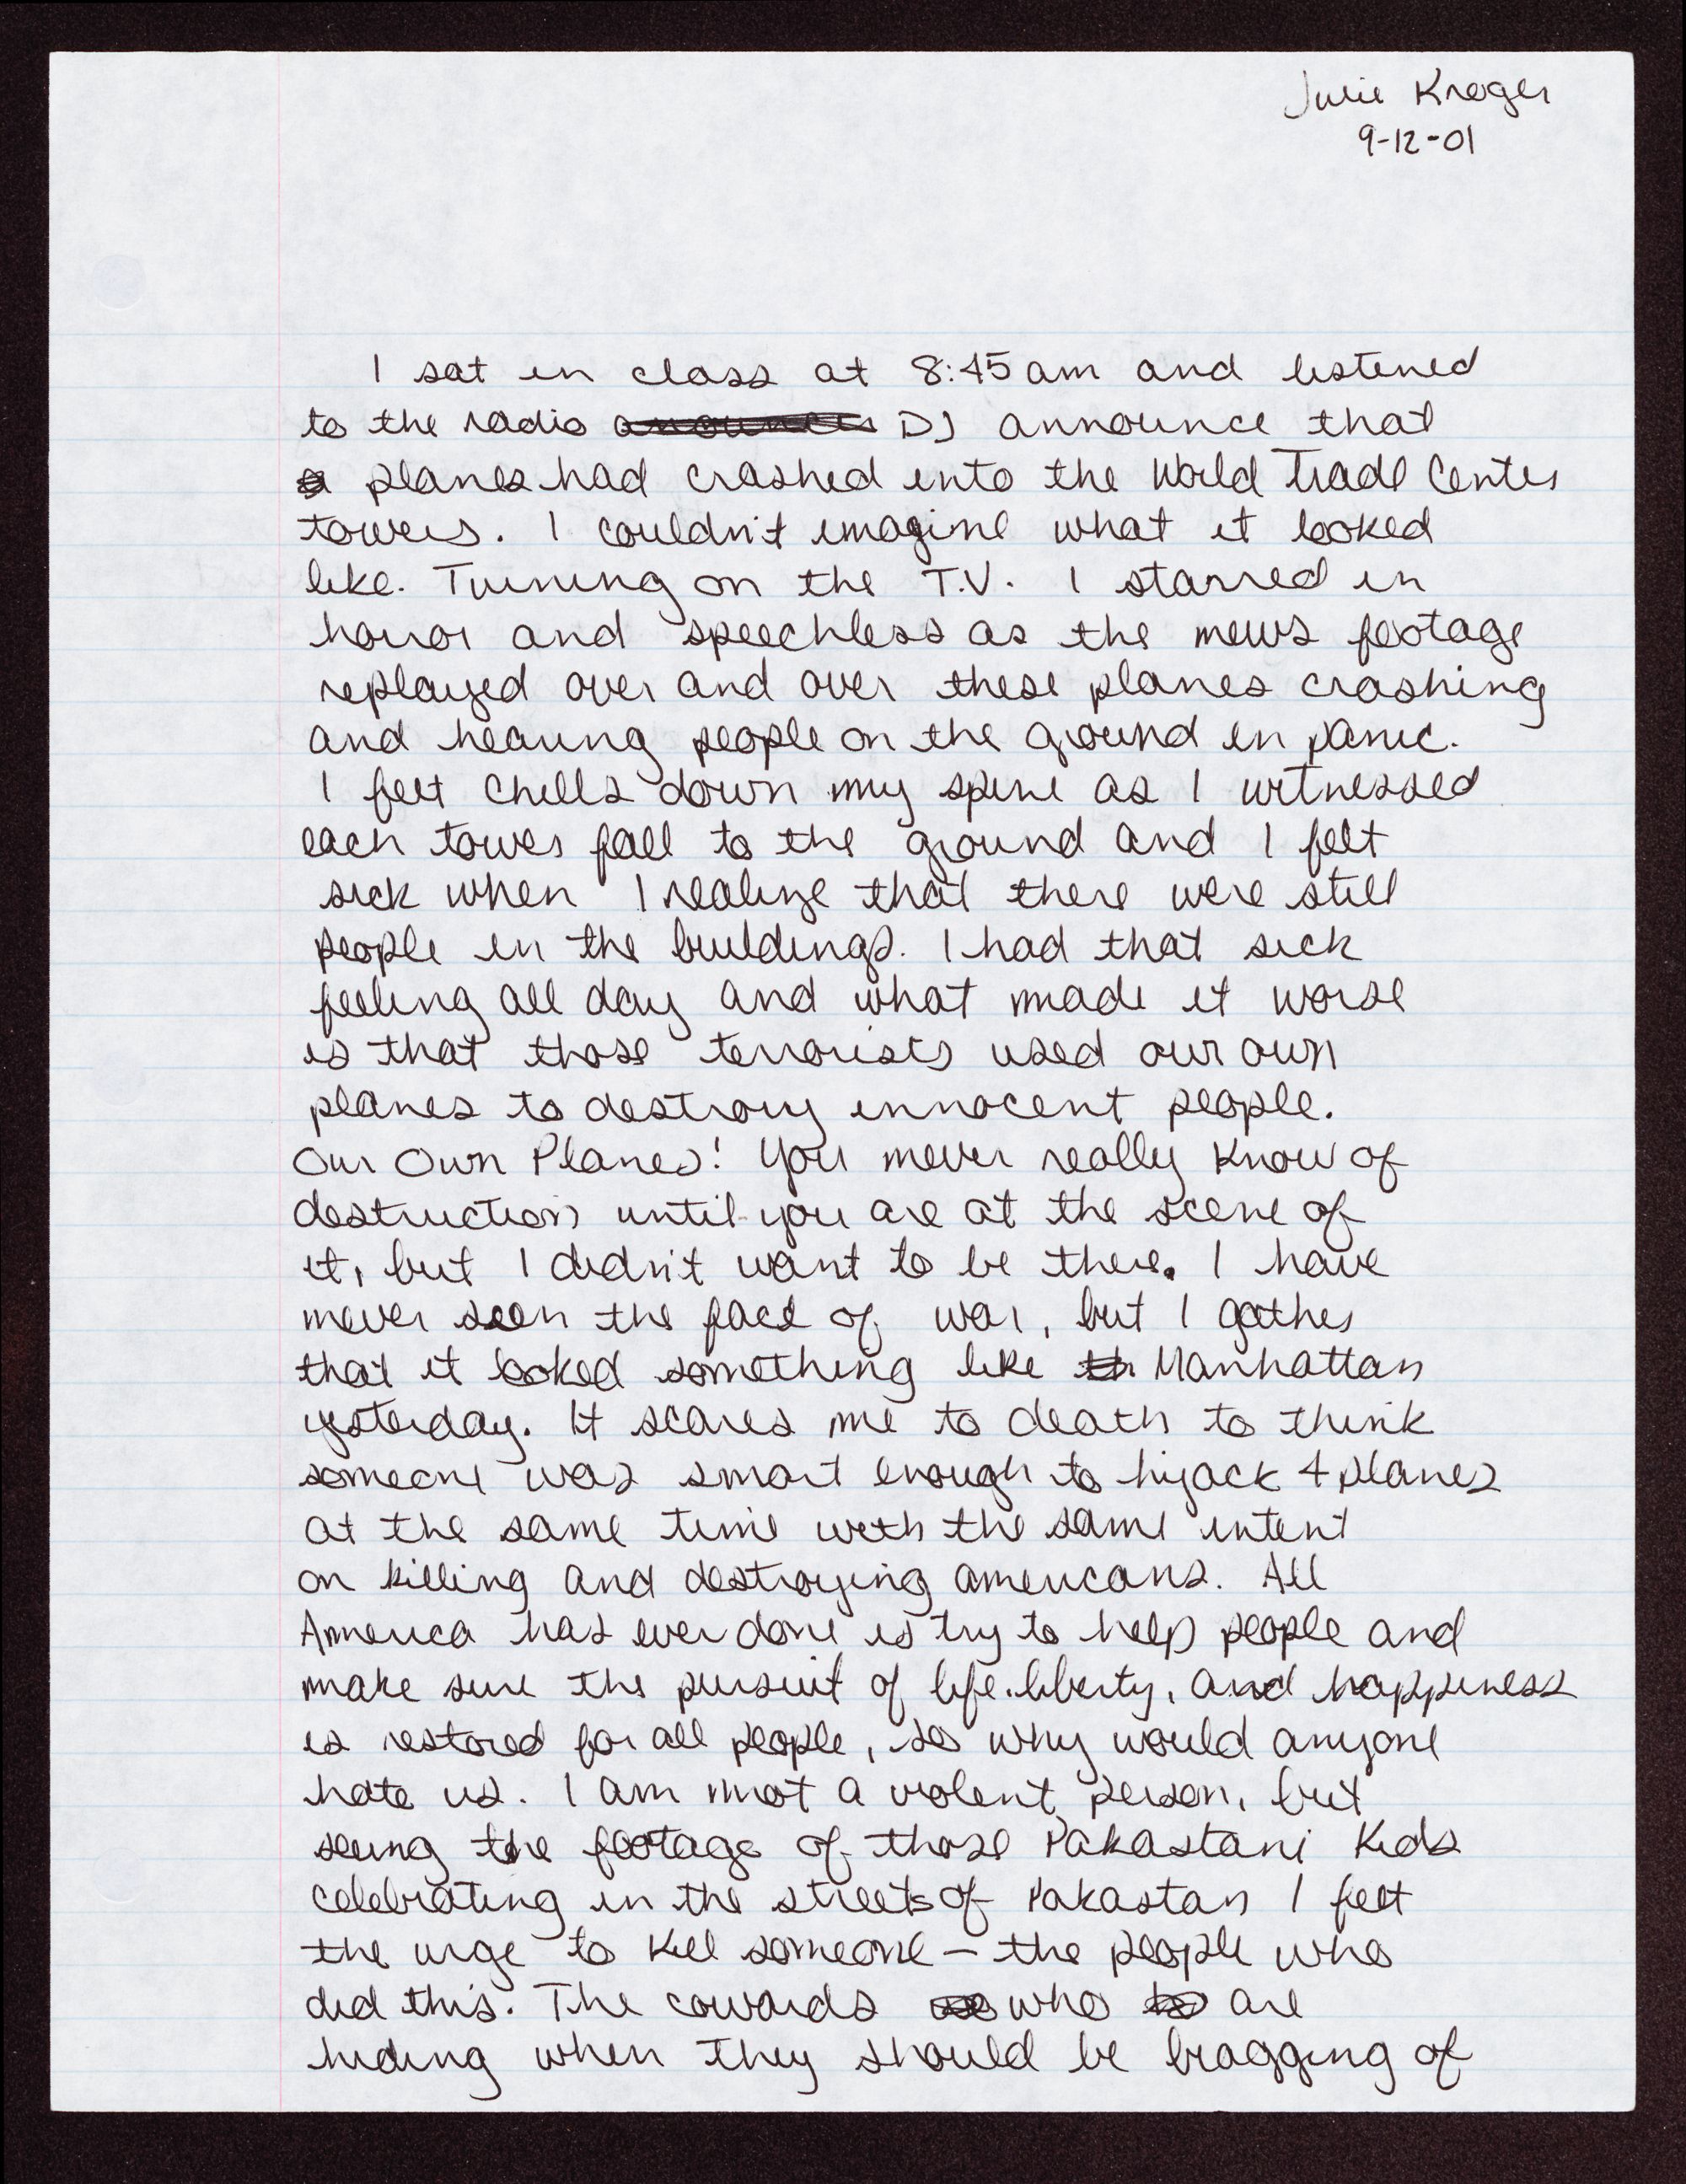 Julie Kroger
9-12-01
I sat in class at 8:45 am and listened
to the radio DJ announce that
planes had crashed into the World Trade Center
towers. I couldn't imagine what it looked
like. Turning on the T.V. I starred in
horror and speechless as the news footage
replayed over and over these planes crashing
and hearing people on the ground in panic.
I felt chills down my spine as I witnessed
each tower fall to the ground and I felt
sick when I realize that there were still
people in the buildings. I had that sick
feeling all day and what made it worse
is that those terrorists used our own
planes to destroy innocent people.
Our Own Planes! You never really know of
destruction until you are at the scene of
it, but I didn't want to be there. I have
never seen the face of war, but I gather
that it looked something like Manhattan
yesterday. It scares me to death to think
someone was smart enough to hijack 4 planes
at the same time with the same intent
on killing and destroying americans. All
America has ever done is try to help people and
make sure the pursuit of life, liberty, and happiness
is restored for all people, so why would anyone
hate us. I am not a violent person, but
seeing the footage of those Pakastani Kids
celebrating in the streets of Pakastan I felt
the urge to kill someone - the people who
did this. The cowards who are
hiding when they should be bragging of